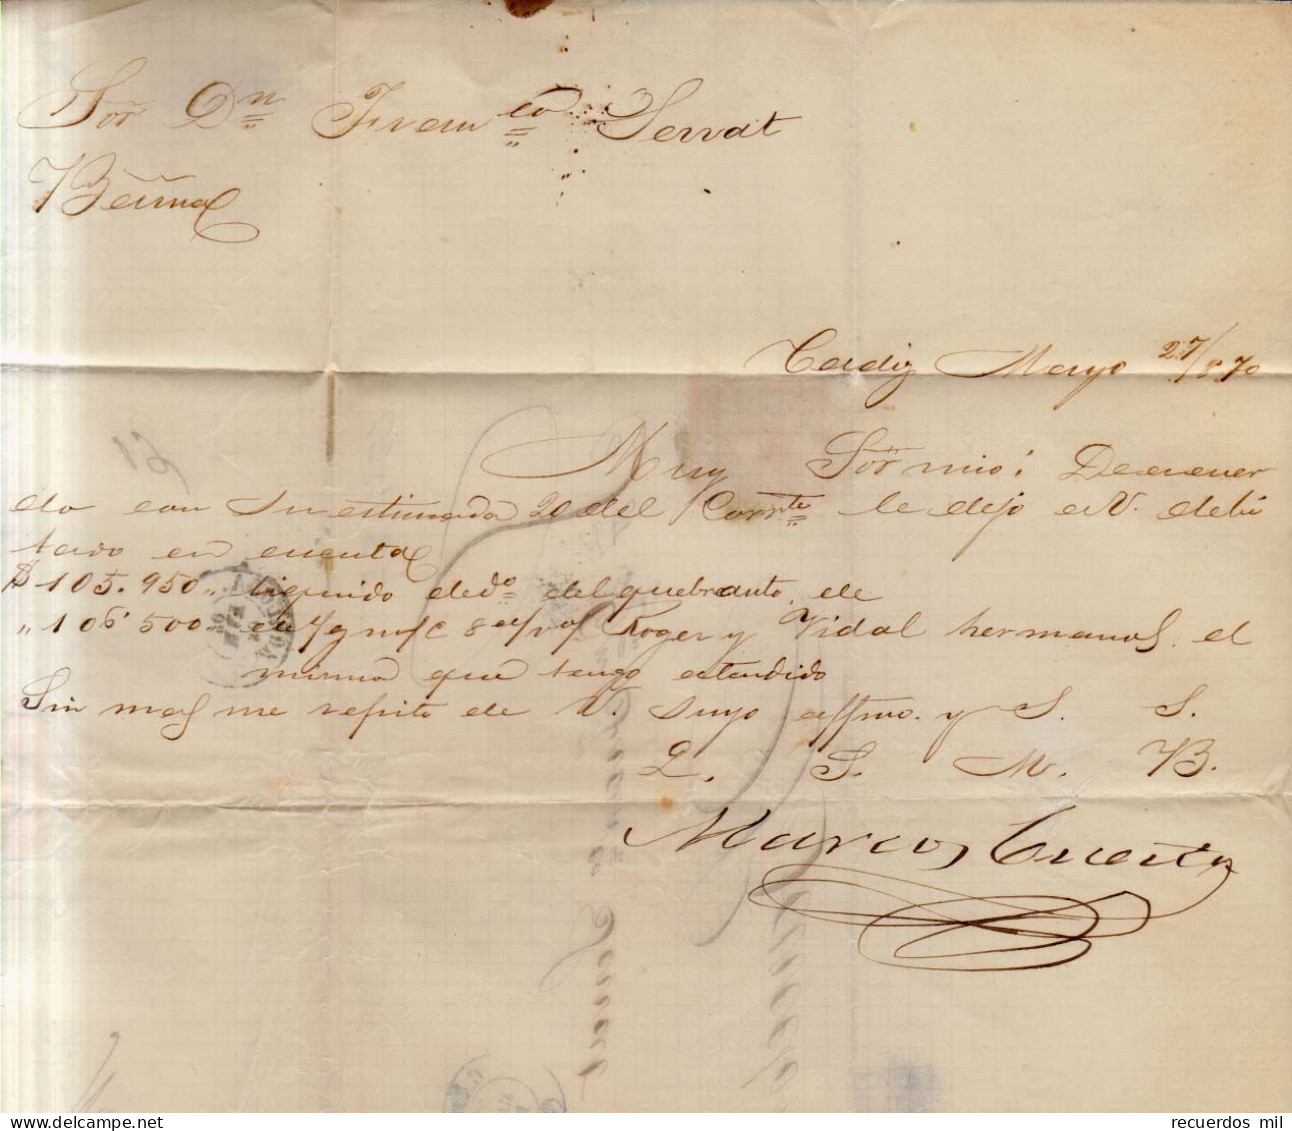 Sōr Dn Franco Serrat
Bcūna
Cadiz Mayo 27/870
Muy Sōr mio: De acuer
do con su estimada 20 del Corrte le dejo a V. debi
tado en cuenta
$ 105.950,, liquido dedo del quebranto, de
,, 106'500,, en m/c 8 Roger y Vidal hermanos. el
mismo que tengo atendido
Sin mas me repito de V. suyo affmo. y S. S.
Q. S. M. B.
Marcos Cuesta
61
recuerdos mil